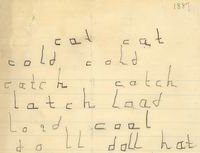 1887
cat cat
cold cold
catch catch
latch load
lord coal
doll doll hat